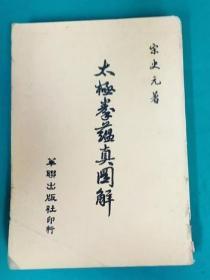 宋史元著
太極拳蘊真圖解
華聯出版社印行